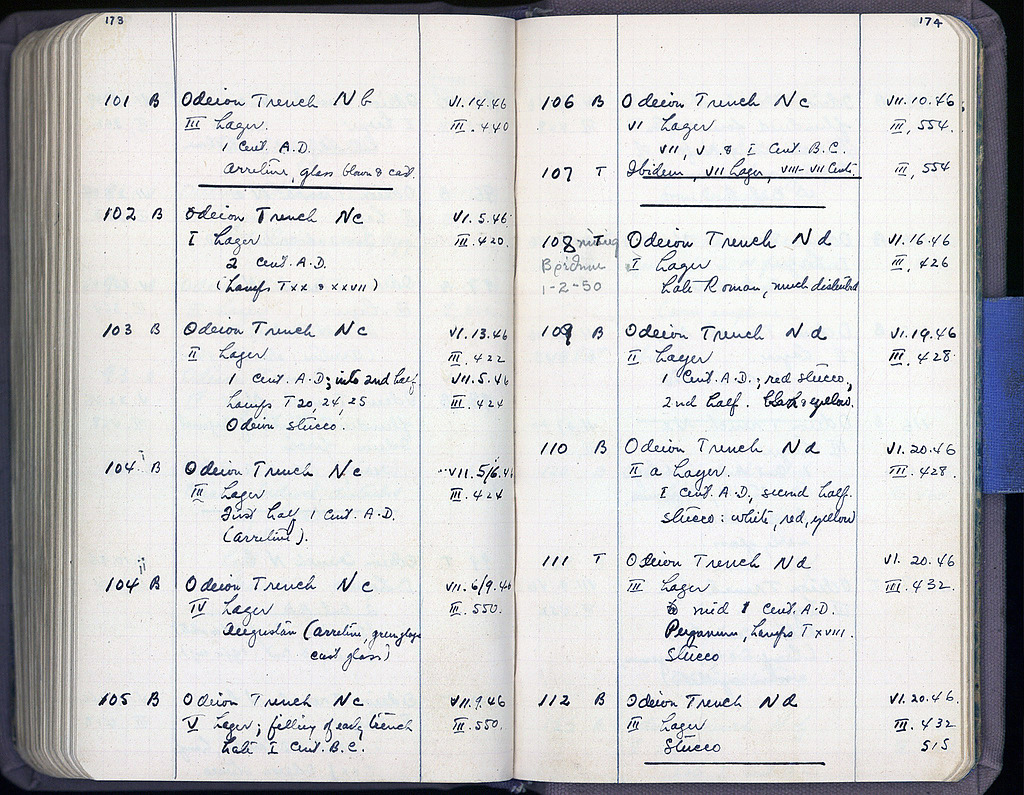 173
101 B Odeion Trench Nb VI.14.46
III Lager. III.440
1 Cent. A.D.
Arretine, glass blown & cast.
102 B Odeion Trench Nc VI.5.46
I Lager III.420.
2 Cent. A.D.
(Lamps T XX & XXVII)
103 B Odeion Trench Nc VI.13.46
II Lager III.422
1 Cent. A.D; into 2nd half. VII.5.46
Lamps T 20, 24, 25 III.424
Odeion stucco.
104 i B Odeion Trench Nc VII.5/6.46
III Lager III.424
First half 1 Cent. A.D.
(arretine).
104 ii B Odeion Trench Nc VII.6/9.46
IV Lager III.550.
Augustan (arretine, green glaze
cast glass)
105 B Odeion Trench Nc VII.9.46
V Lager; filling of early trench III.550.
Late I Cent. B.C.
174
106 B Odeion Trench Nc VII.10.46;
VI Lager III, 554.
VII, V & I Cent. B.C.
107 T Ibidem, VII Lager, VIII-VII Cents. III, 554
108 T Odeion Trench Nd VI.16.46
missing
B
1-2-50
I Lager III, 426
Late Roman, much disturbed
109 B Odeion Trench Nd VI.19.46
II Lager III.428.
1 Cent. A.D.; red stucco,
2nd half. black & yellow.
110 B Odeion Trench Nd VI.20.46
II a Lager. III.428.
I Cent. A.D., second half.
Stucco: white, red, yellow
111 T Odeion Trench Nd VI.20.46
III Lager III.432.
mid 1 Cent. A.D.
Pergamum, Lamps T XVIII.
Stucco
112 B Odeion Trench Nd VI.20.46.
III Lager III.432
Stucco 515